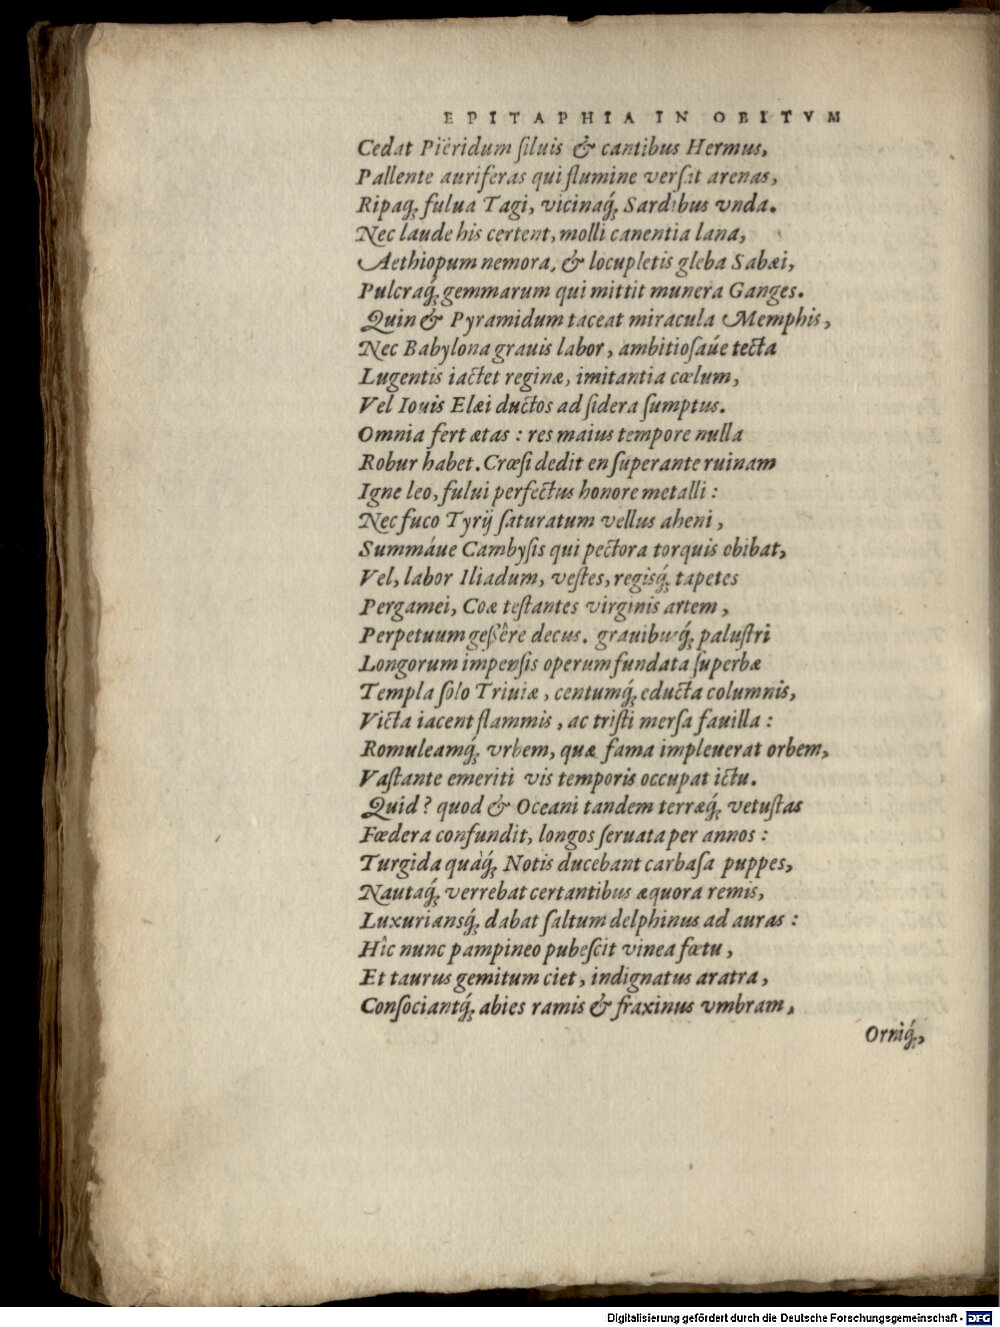 EPITAPHIA IN OBITVM
Cedat Pieridum ſiluis & cantibus Hermus,
Pallente auriferas qui flumine verſat arenas,
Ripaq́; fulua Tagi, vicinaq́; Sardibus vnda.
Nec laude his certent, molli canentia lana,
Aethiopum nemora, & locupletis gleba Sabæi,
Pulcraq́; gemmarum qui mittit munera Ganges.
Quin & Pyramidum taceat miracula Memphis,
Nec Babylona grauis labor, ambitioſaúe tecta
Lugentis iactet reginæ, imitantia cœlum,
Vel Iouis Elæi ductos ad ſidera ſumptus.
Omnia fert ætas : res maius tempore nulla
Robur habet. Crœſi dedit en ſuperante ruinam
Igne leo, fului perfectus honore metalli :
Nec fuco Tyrij ſaturatum vellus aheni,
Summáue Cambyſis qui pectora torquis obibat,
Vel, labor Iliadum, veſtes, regisq́; tapetes
Pergamei, Coæ teſtantes virginis artem,
Perpetuum geſſêre decus. grauibusq́; paluſtri
Longorum impenſis operum fundata ſuperbæ
Templa ſolo Triuiæ, centumq́; educta columnis,
Victa iacent flammis, ac triſti merſa fauilla :
Romuleamq́; vrbem, quæ fama impleuerat orbem,
Vaſtante emeriti vis temporis occupat ictu.
Quid? quod & Oceani tandem terræq́; vetuſtas
Fœdera confundit, longos ſeruata per annos :
Turgida quàq́; Notis ducebant carbaſa puppes,
Nautaq́; verrebat certantibus æquora remis,
Luxuriansq́; dabat ſaltum delphinus ad auras :
Hîc nunc pampineo pubeſcit vinea fœtu,
Et taurus gemitum ciet, indignatus aratra,
Conſociantq́; abies ramis & fraxinus vmbram,
Orniq́;,
Digitalisierung gefördert durch die Deutsche Forschungsgemeinschaft - DFG